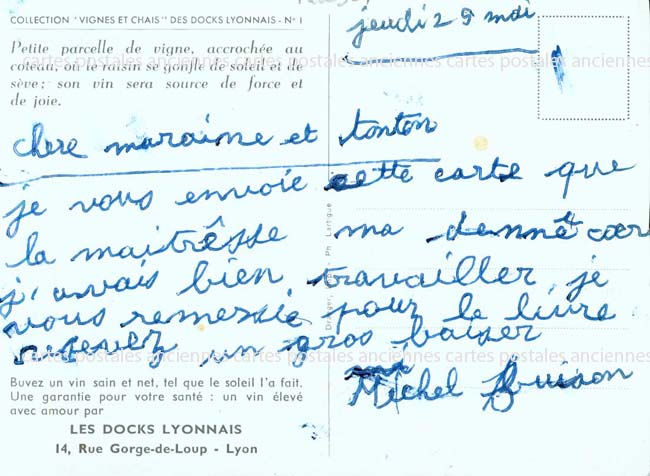 COLLECTION "VIGNES ET CHAIS" DES DOCKS LYONNAIS - N° 1
jeudi 29 mai
Petite parcelle de vigne, accrochée au
coteau, où le raisin se gonfle de soleil et de
sève; son vin sera source de force et
de joie.
cartes postales anciennes cartes postales anciennes cartes postales anciennes
chere maraine et tonton
je vous envoie cette carte que
la maitrêsse ma denné car
j'avais bien travailler je
vous remessie pour le livre
recevez un gros baiser
cartes postales anciennes cartes postales anciennes cartes postales anciennes
Michel Buisson
Draeger - Ph. Lartigue
Buvez un vin sain et net, tel que le soleil l'a fait.
Une garantie pour votre santé : un vin élevé
avec amour par
LES DOCKS LYONNAIS
14, Rue Gorge-de-Loup - Lyon